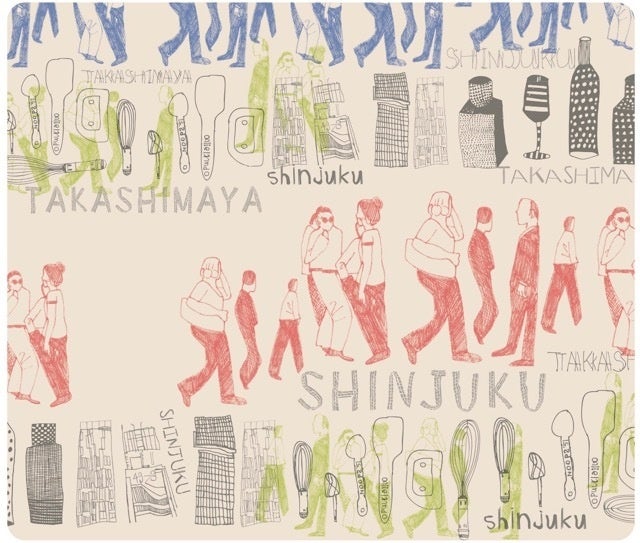 SHINJUKU
TAKASHIMAYA
shinjuku
TAKASHIMA
TAKASHIMAYA
TAKASH
SHINJUKU
SHINJUKU
shinjuku